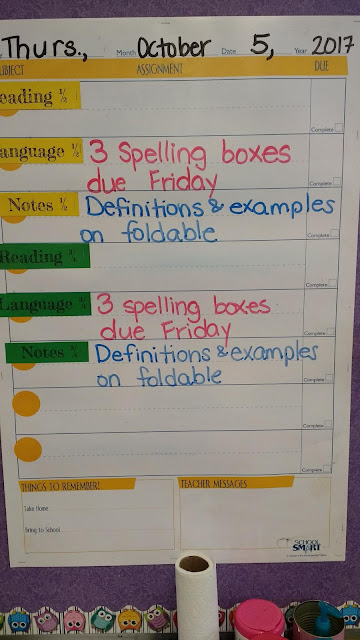 Thurs., Month October Date 5, Year 2017
UBJECT ASSIGNMENT DUE
eading ½
Complete
anguage ½ 3 Spelling boxes
due Friday
Complete
Notes ½ Definitions & examples
on foldable
Complete
Reading
Complete
Language 3 spelling boxes
due Friday
Complete
Notes Definitions & examples
on foldable
Complete
Complete
Complete
THINGS TO REMEMBER!
Take Home
Bring to School
TEACHER MESSAGES
SCHOOL
SMART